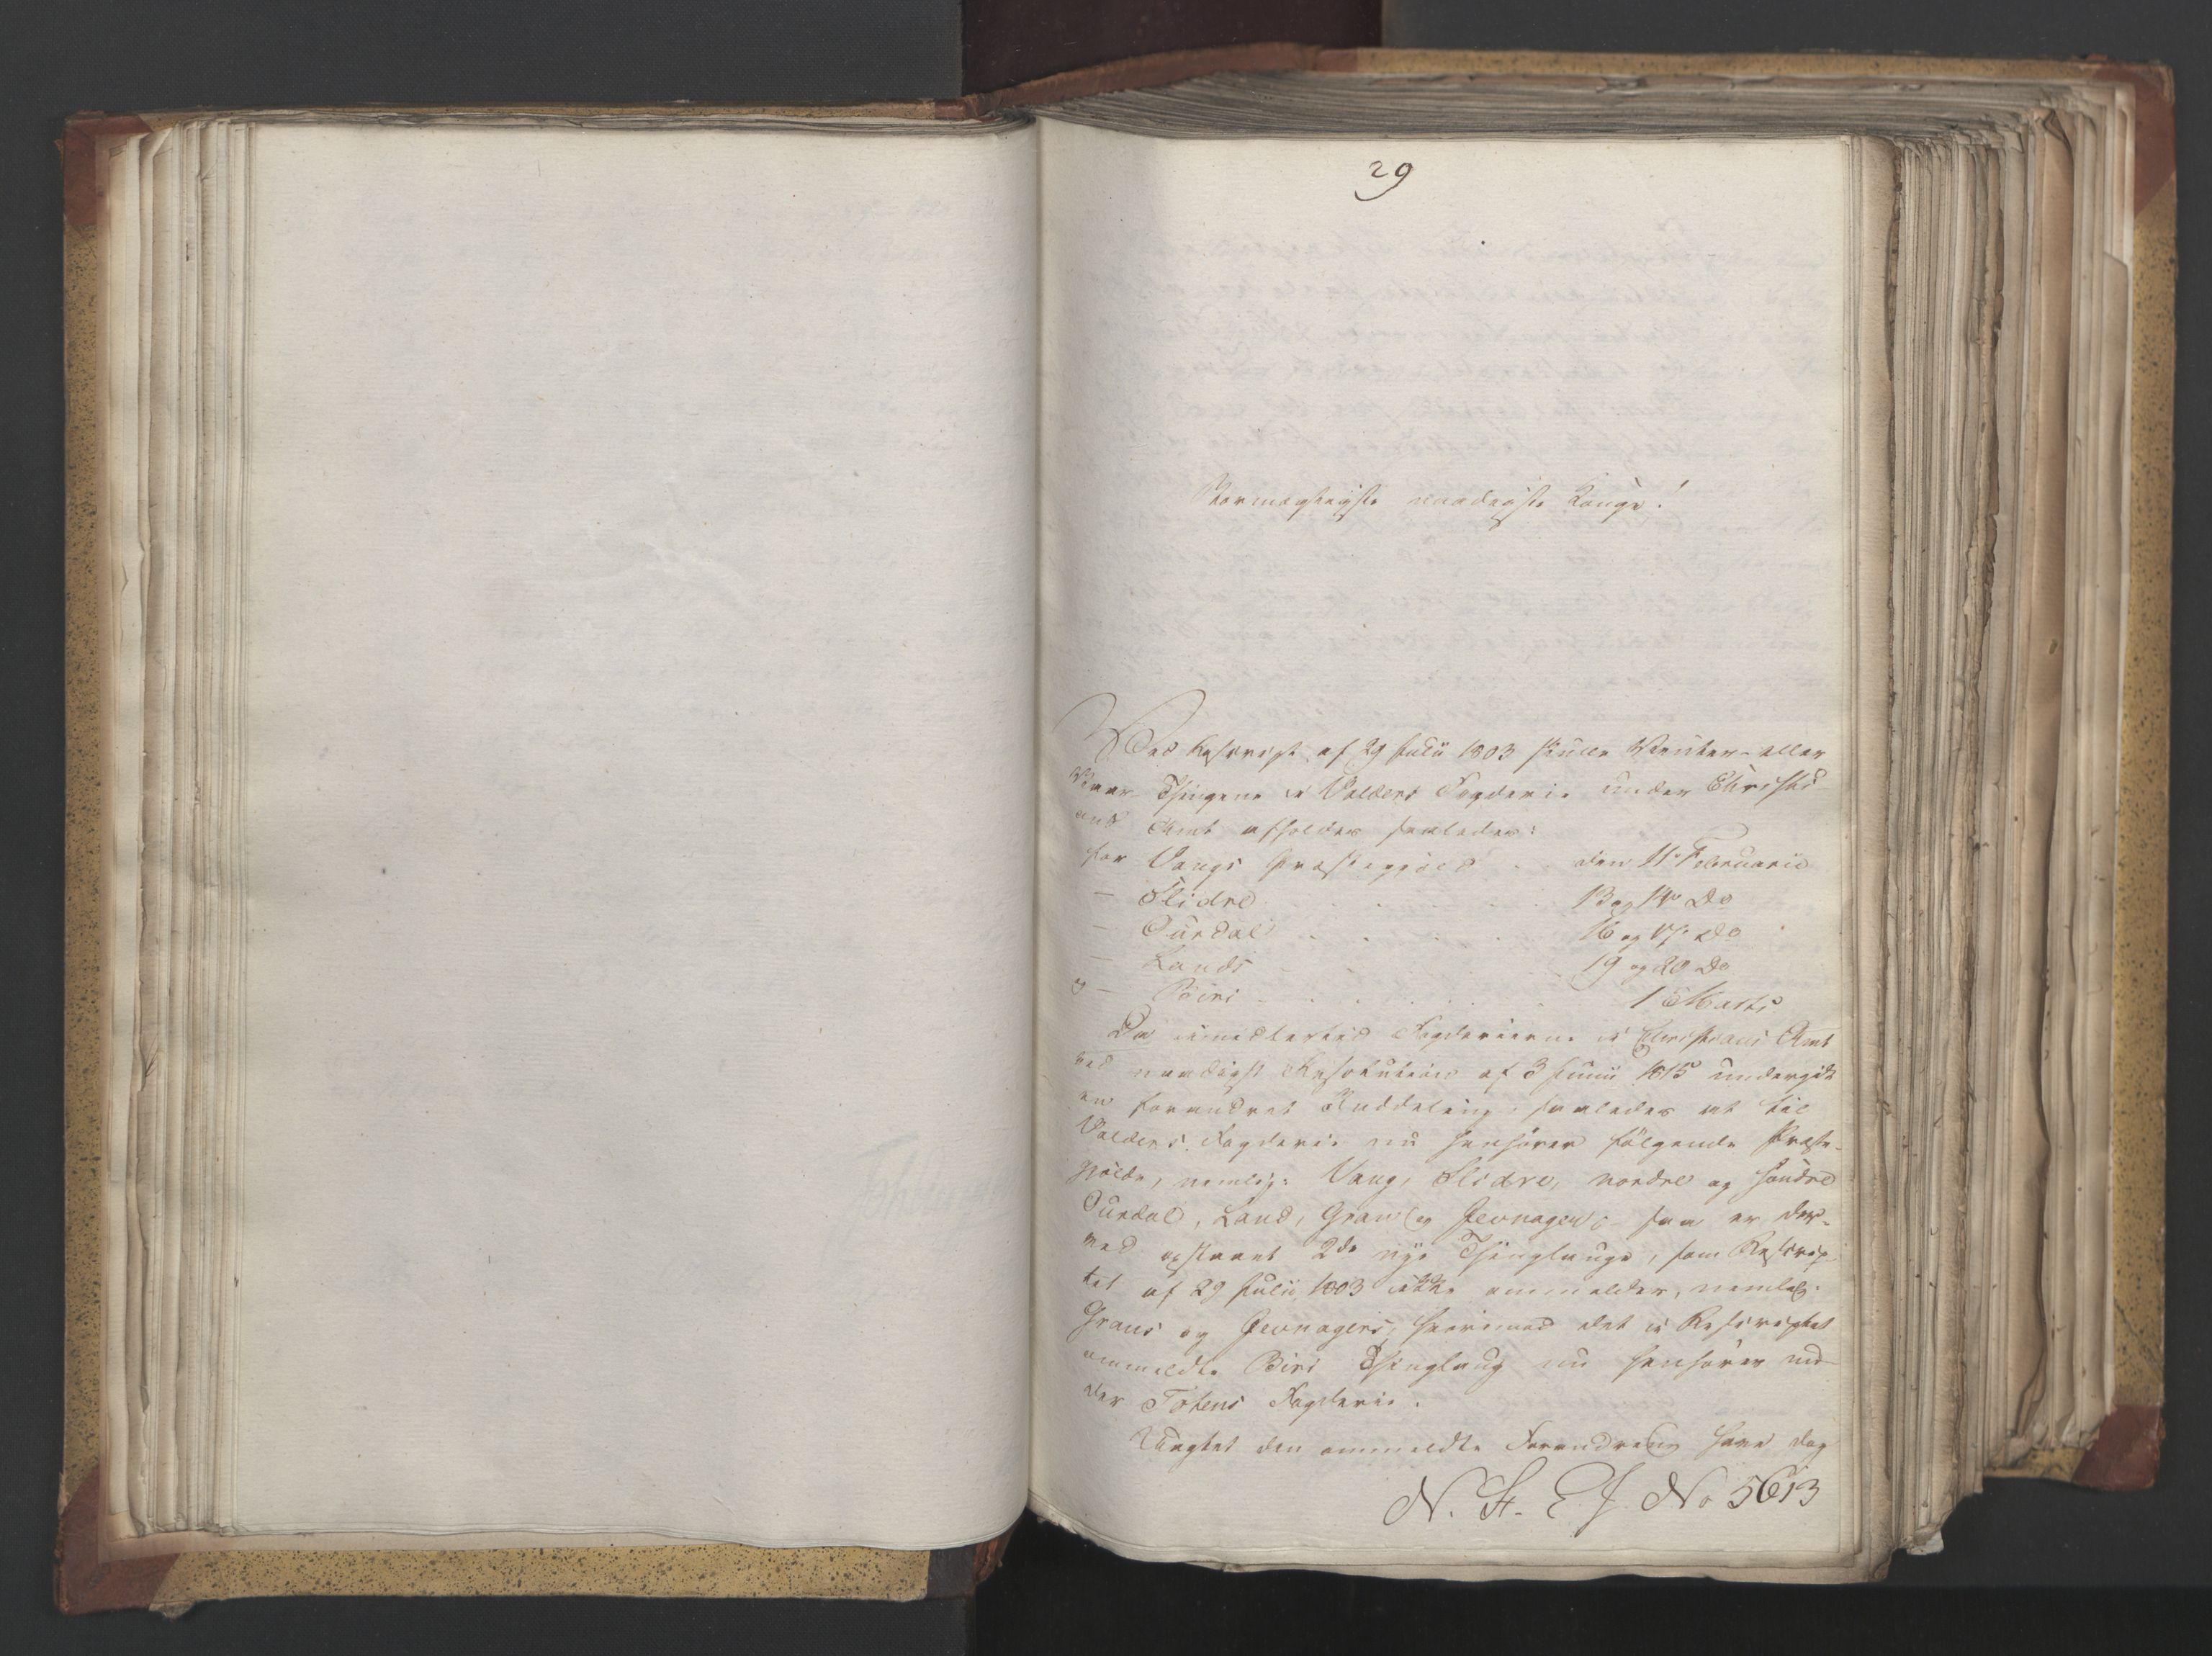 29
Stormægtigste naadigste Konge!
Ved Rescript af 29 Julii 1803 skulle Vinter- eller
Vaar-Thingene i Valders Fogderie under Christi-
ans Amt afholdes saaledes:
for Vangs Præstegjeld . den 11te Februarii
— Slidre . . . . . 13 og 14de Do
— Aurdal . . . . 16 og 17de Do
— Lands . . . 19 og 20 Do
og — Biri . . . . . 1 Marts
Da imidlertid Fogderierne i Christians Amt
ved naadigst Resolution af 3 Junii 1815 undergik
en forandret Inddeling, saaledes at til
Valders Fogderie nu henhører følgende Præste-
gjelde, nemlig: Vang, Slidre, nordre og søndre
Aurdal, Land, Gran og Jevnager; saa er der-
ved opstaaet 2de nye Thinglauge, som Rescrip-
tet af 29 Julii 1803 ikke ommelder, nemlig:
Grans og Jevnagers, hvorimod det i Rescriptet
ommeldte Biri Thinglaug nu henhører un-
der Totens Fogderie.
Uagtet den ommeldte Forandring har dog
N. St. E J. No 5613